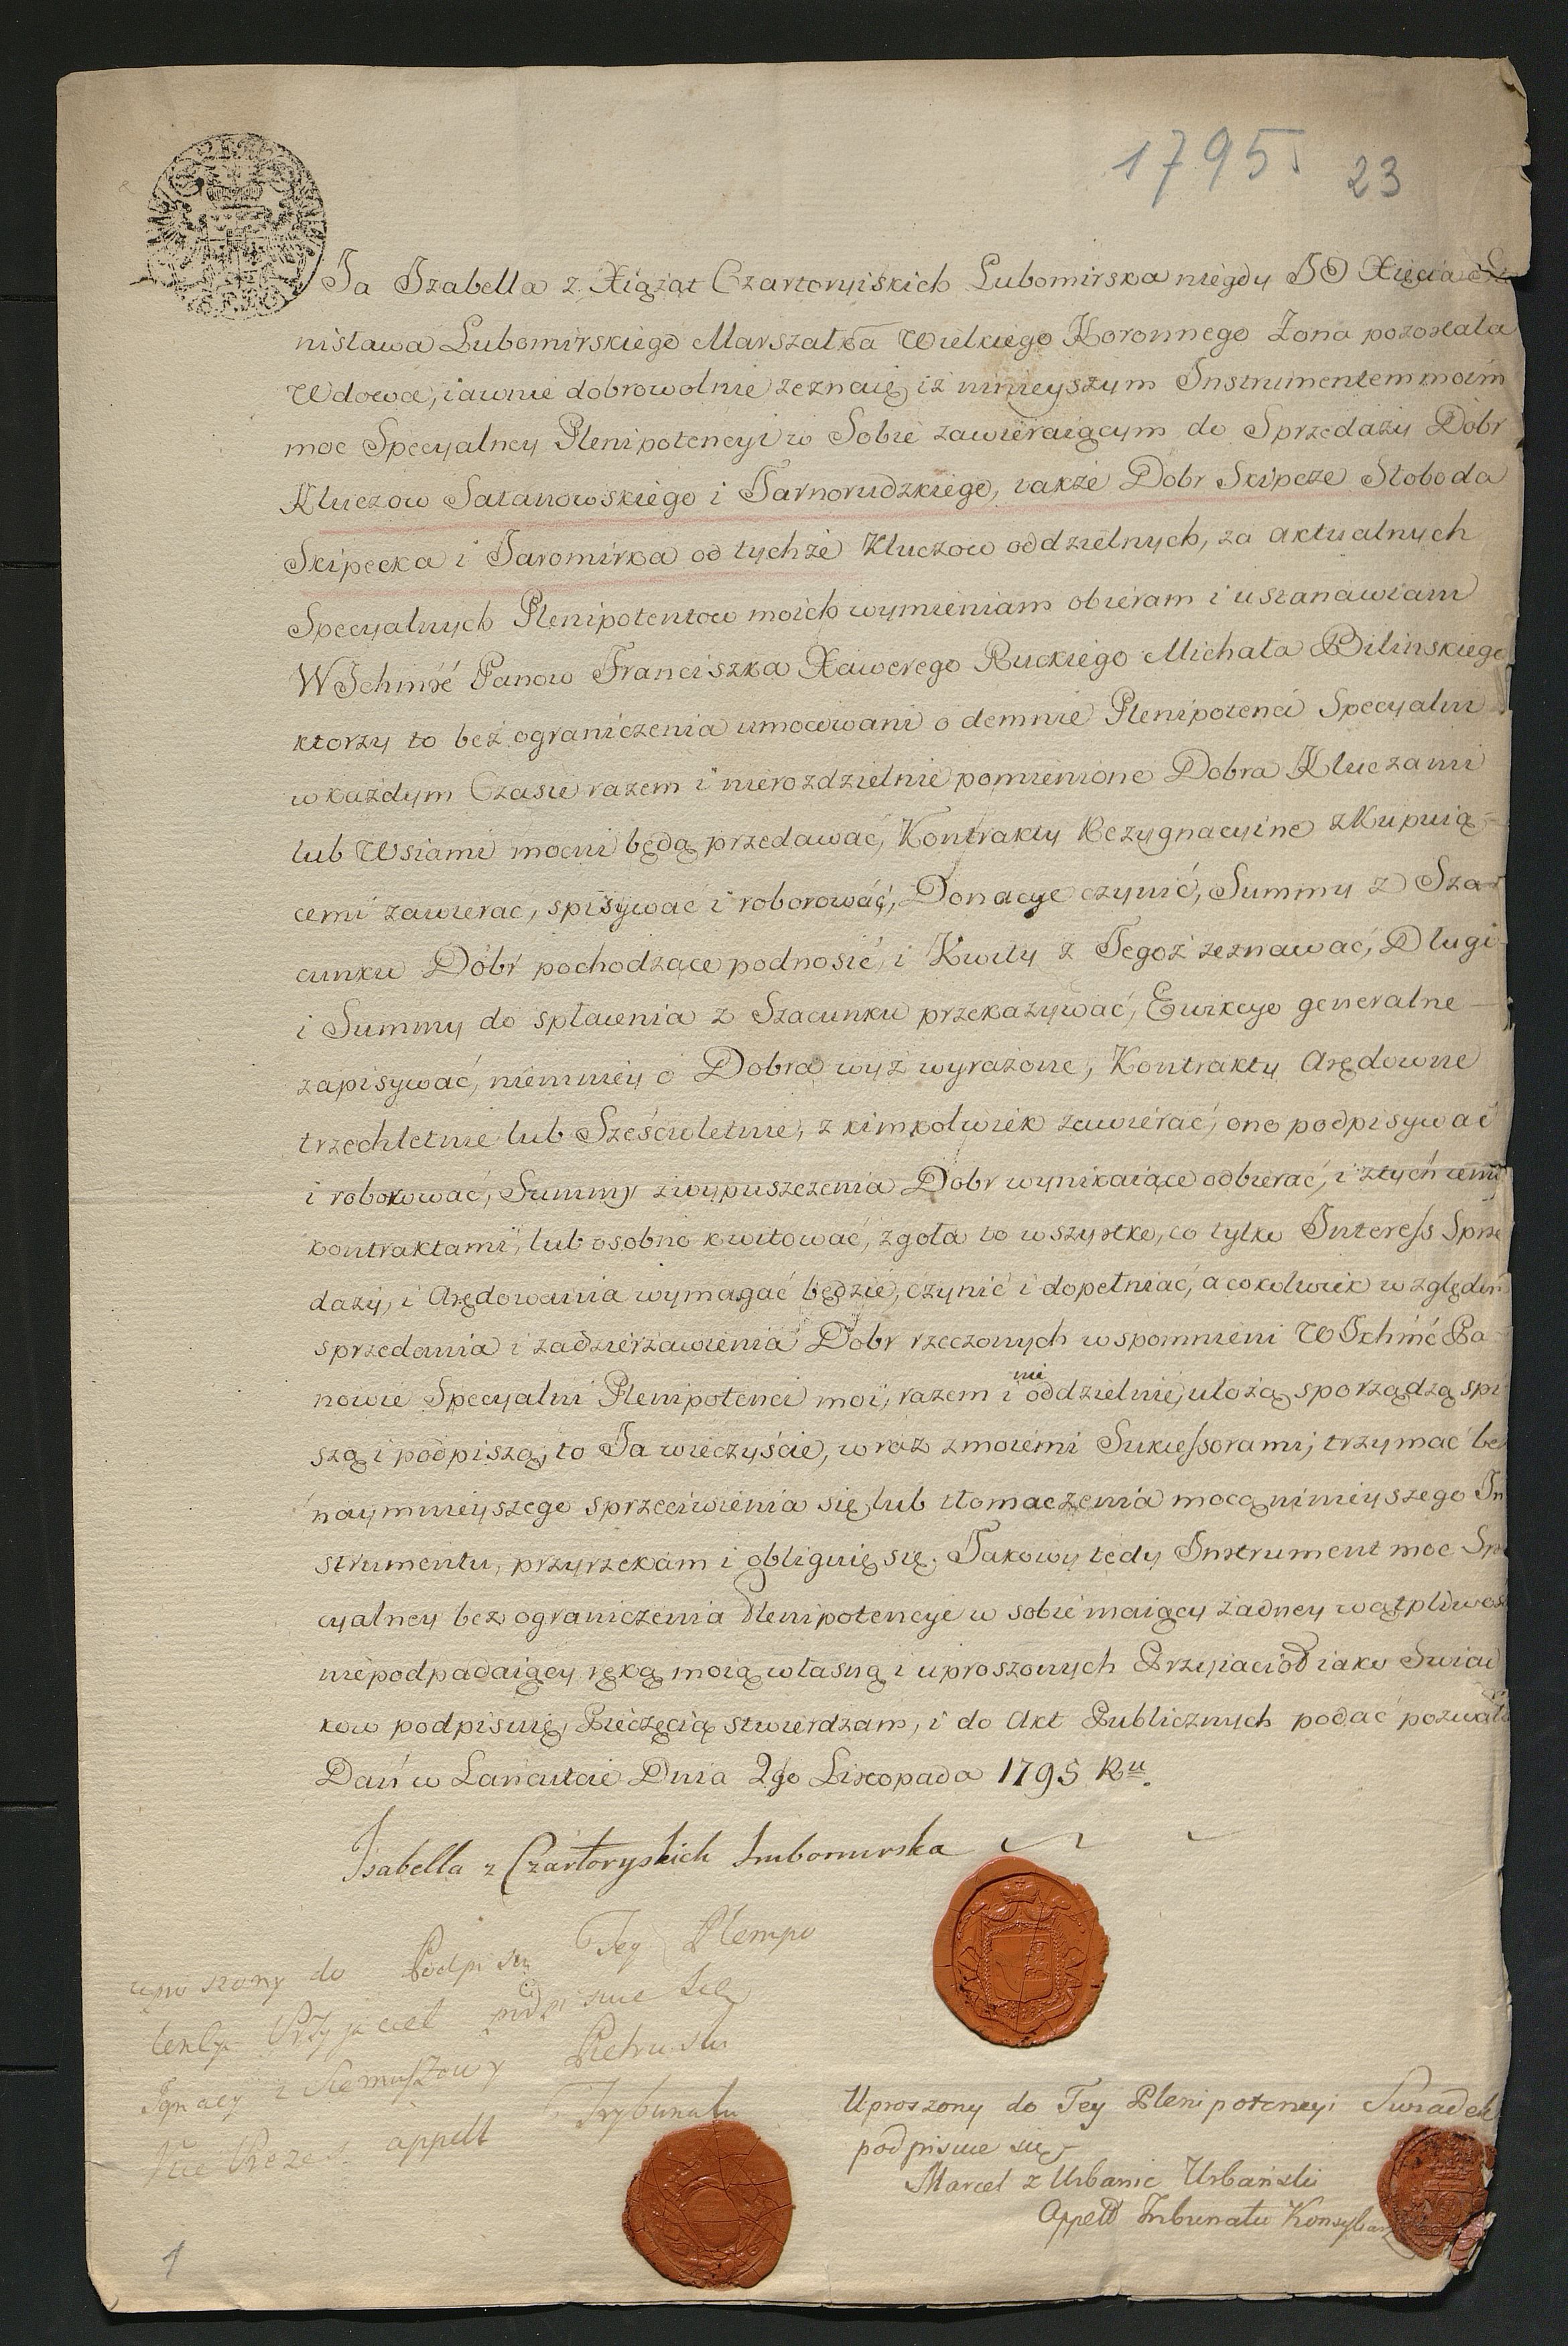 1795. 23
Ja Izabella z Xiążąt Czartoryiskich Lubomirska niegdy JO Xięcia Sta
nisława Lubomirskiego Marszałka Wielkiego Koronnego Żona pozostała
Wdowa, iawnie dobrowolnie zeznaię iż ninieyszym Instrumentem moim
moc Specyalney Plenipotencyi w Sobie zawieraiącym do Sprzedaży Dobr
Kluczow Satanowskiego i Tarnorudzkiego, także Dobr Skipcze Słoboda
Skipecka i Jaromirka od tychże Kluczow oddzielnych, za aktualnych
Specyalnych Plenipotentow moich wymieniam obieram i ustanawiam
WJchmść Panow Franciszka Xawerego Ruckiego Michała Bilinskiego
ktorzy to beż ograniczenia umocowani odemnie Plenipotenci Specyalni
w każdym Czasie razem i nierozdzielnie pomienione Dobra Kluczami
lub Wsiami mocni będą przedawać, Kontrakty Rezygnacyine z Kupuią-
cemi zawierać, spisywać i roborować, Donacye czynić, Summy z Sza-
cunku Dobr pochodzące podnosić, i Kwity z Tegoż zeznawać, Długi
i Summy do spłacenia z Szacunku przekazywać, Ewikcye generalne
zapisywać, niemniey o Dobra wyż wyrażone, Kontrakty Arędowne
trzechletnie lub Sześcioletnie, z kimkolwiek zawierać, one podpisywać
i roborować, Summy z wypuszczenia Dobr wynikaiące odbierać, i z tychże
kontraktami, lub osobno kwitować, zgoła to wszystko, co tylko Interess Sprze
daży, i Arędowania wymagać będzie, czynić i dopełniać, a cokolwiek względem
sprzedania i zadzierżawienia Dobr rzeczonych wspomnieni WJchmść Pa-
nowie Specyalni Plenipotenci moi, razem i nie oddzielnie, ułożą sporządzą spi
szą i podpiszą, to Ja wieczyście, wraz z moiemi Sukcessorami, trzymać bez
naymnieyszego sprzeciwienia się lub tłomaczenia mocą ninieyszego In
strumentu, przyrzekam i obliguię się. Takowy tedy Instrument moc Spe
cyalney bez ograniczenia Plenipotencye w sobie maiący żadney wątpliwoś
niepodpadaiący ręką moią własną i uproszonych Przyiacioł iako Swiad
kow podpisuię, Pieczęcią stwierdzam, i do Akt Publicznych podać pozwala
Dań w Łańcucie Dnia 2go Listopada 1795 Ru.
Isabella z Czartoryskich Lubomirska
uproszony do Podpisu Tey Plenipo
tencyi Przyjaciel podpisuie się
Ignacy z Siemuszowy Pietruski
Vice Prezes appell Trybunału
Uproszony do Tey Plenipotencyi Swiadek
podpisuie się
Marcel z Urbanic Urbański
Appell Tribunału Konsyliarz
1